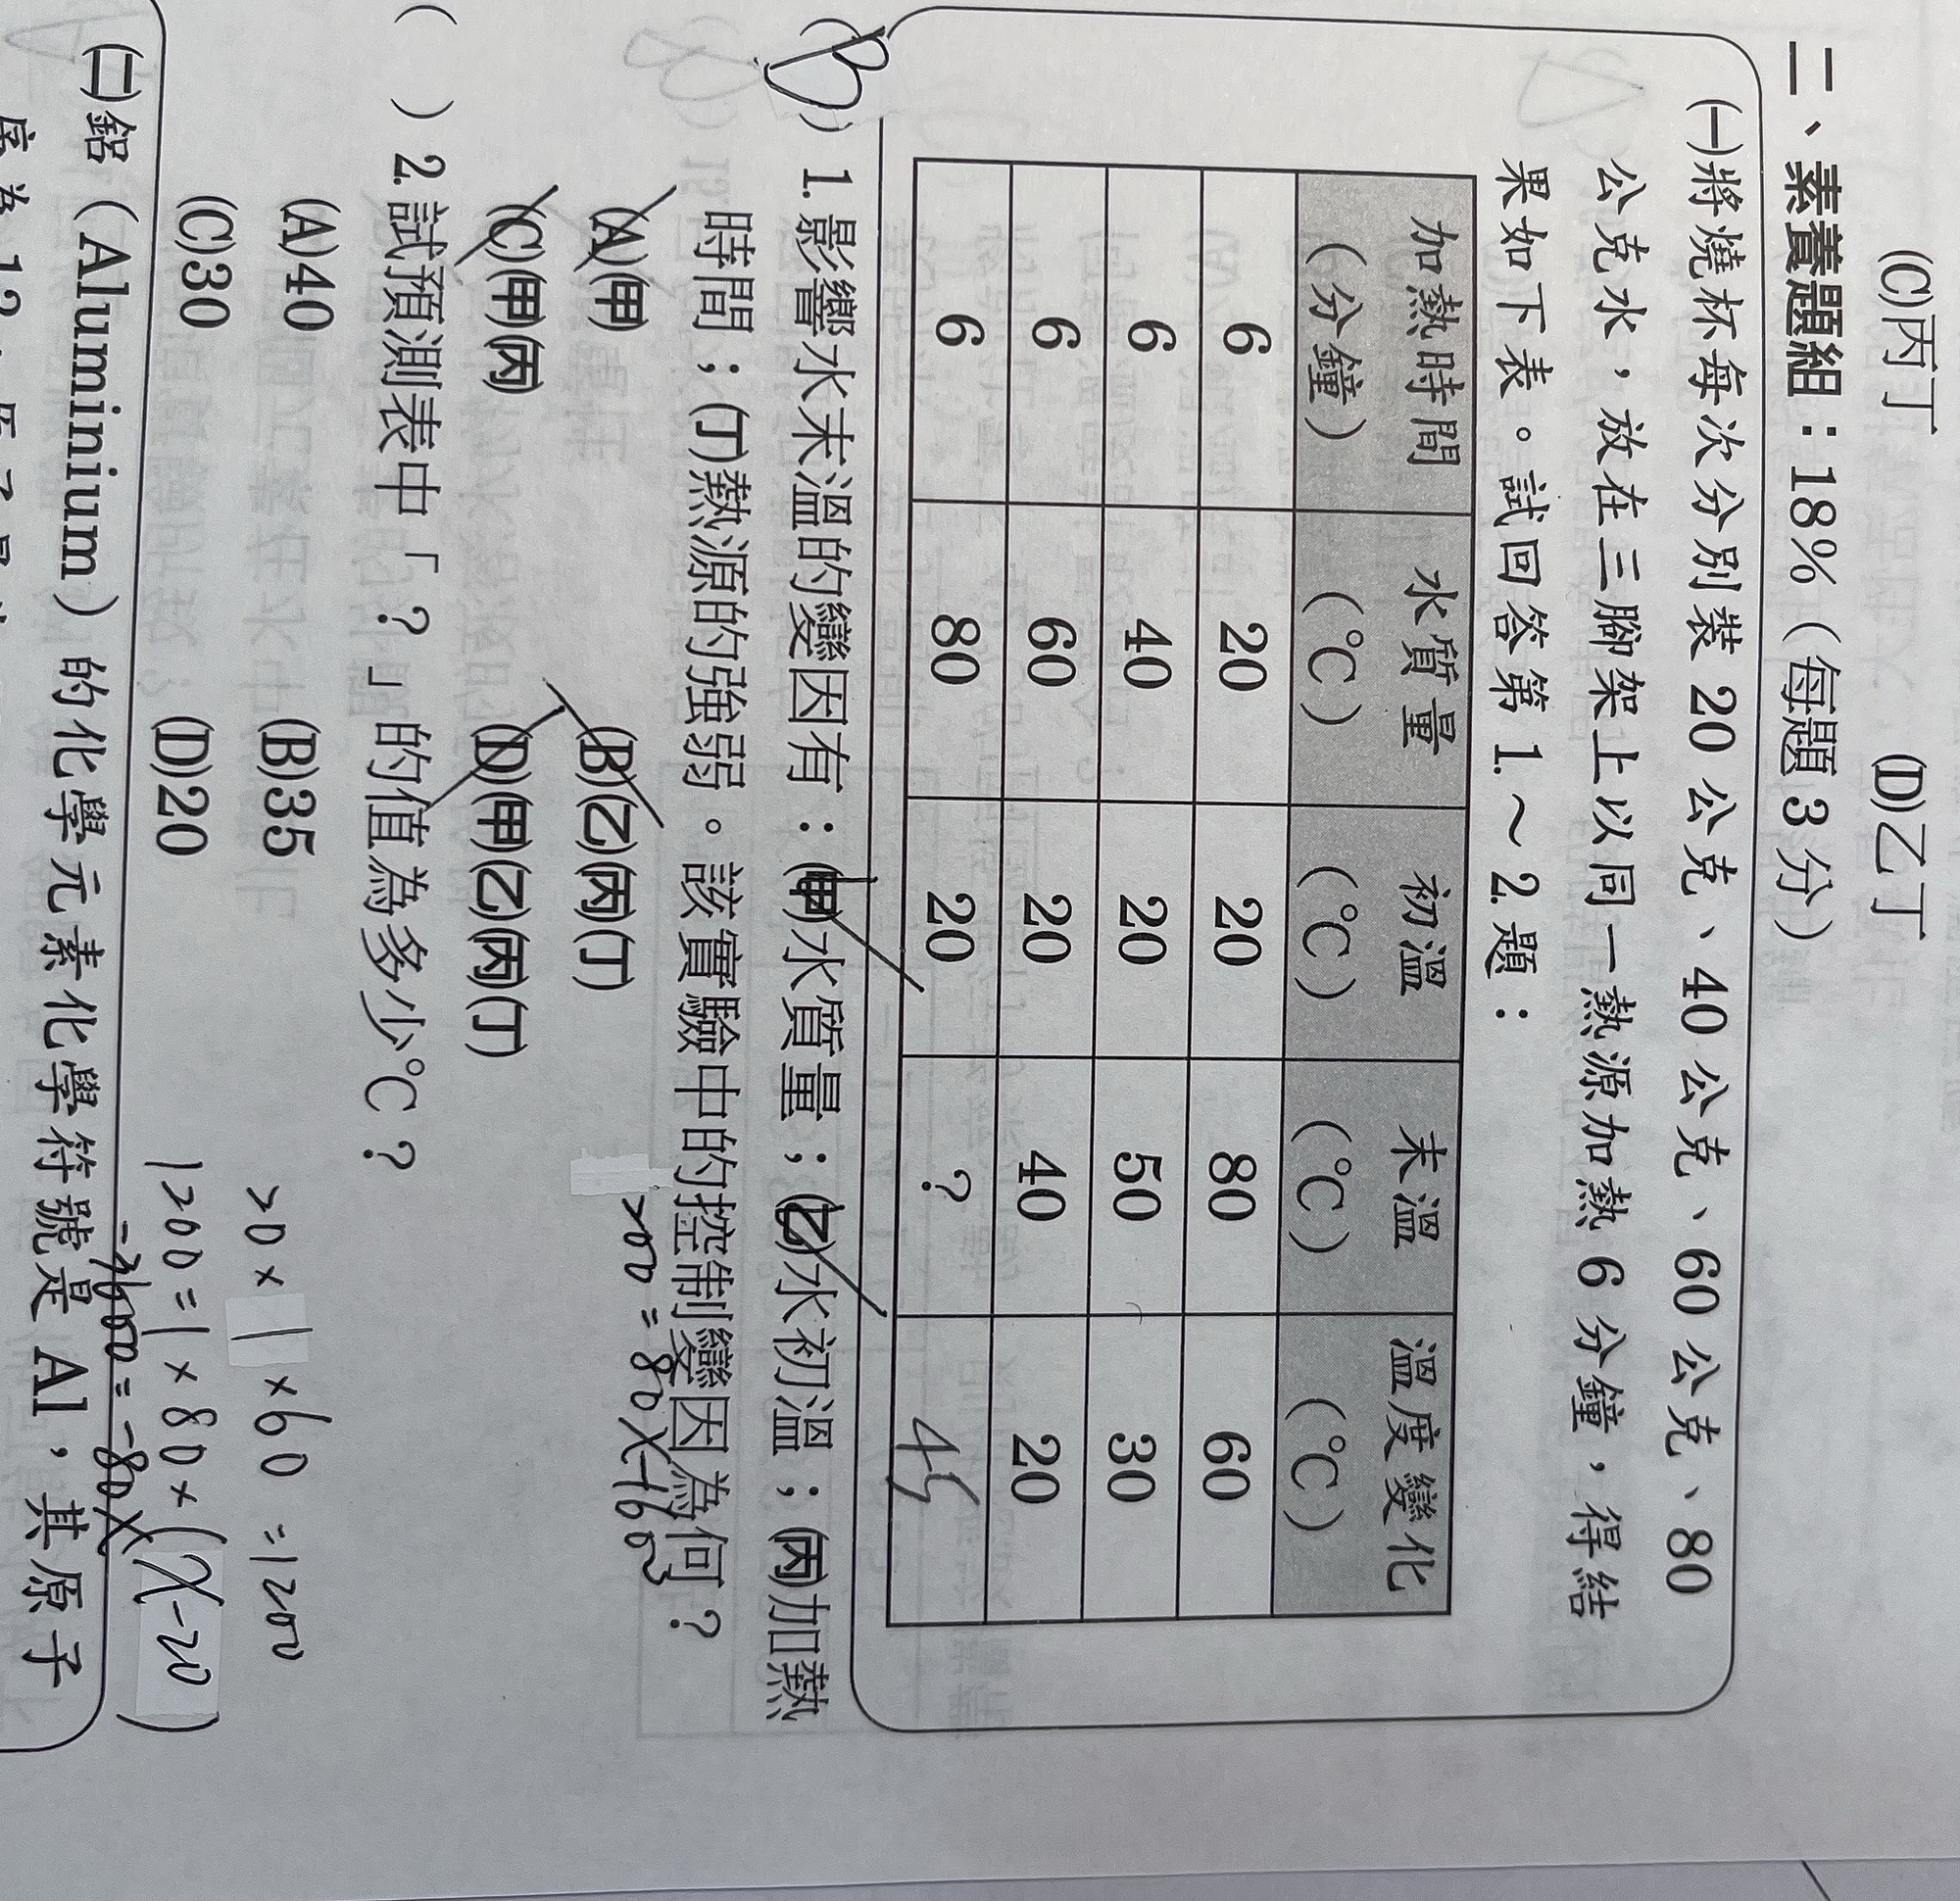 (C)丙丁 (D)乙丁
二、素養題組：18%（每題 3 分）
(一)將燒杯每次分別裝 20 公克、40 公克、60 公克、80
公克水，放在三腳架上以同一熱源加熱 6 分鐘，得結
果如下表。試回答第 1.～2.題：
加熱時間（分鐘） 水質量（℃） 初溫（℃） 末溫（℃） 溫度變化（℃）
6 20 20 80 60
6 40 20 50 30
6 60 20 40 20
6 80 20 ? 45
(B) 1.影響水末溫的變因有：(甲)水質量；(乙)水初溫；(丙)加熱
時間；(丁)熱源的強弱。該實驗中的控制變因為何？
(A)(甲) (B)(乙)(丙)(丁)
(C)(甲)(丙) (D)(甲)(乙)(丙)(丁)
( ) 2.試預測表中「？」的值為多少℃？
(A)40 (B)35
(C)30 (D)20
200=80X-1600
20×1×60=1200
1200=1×80×(X-20)
-3600=-80X
(二)鋁（Aluminium）的化學元素化學符號是 Al，其原子